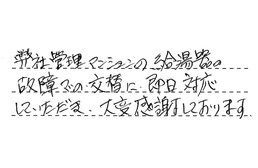 弊社管理マンションの給湯器の
故障での交替に即日対応
していただき、大変感謝しております